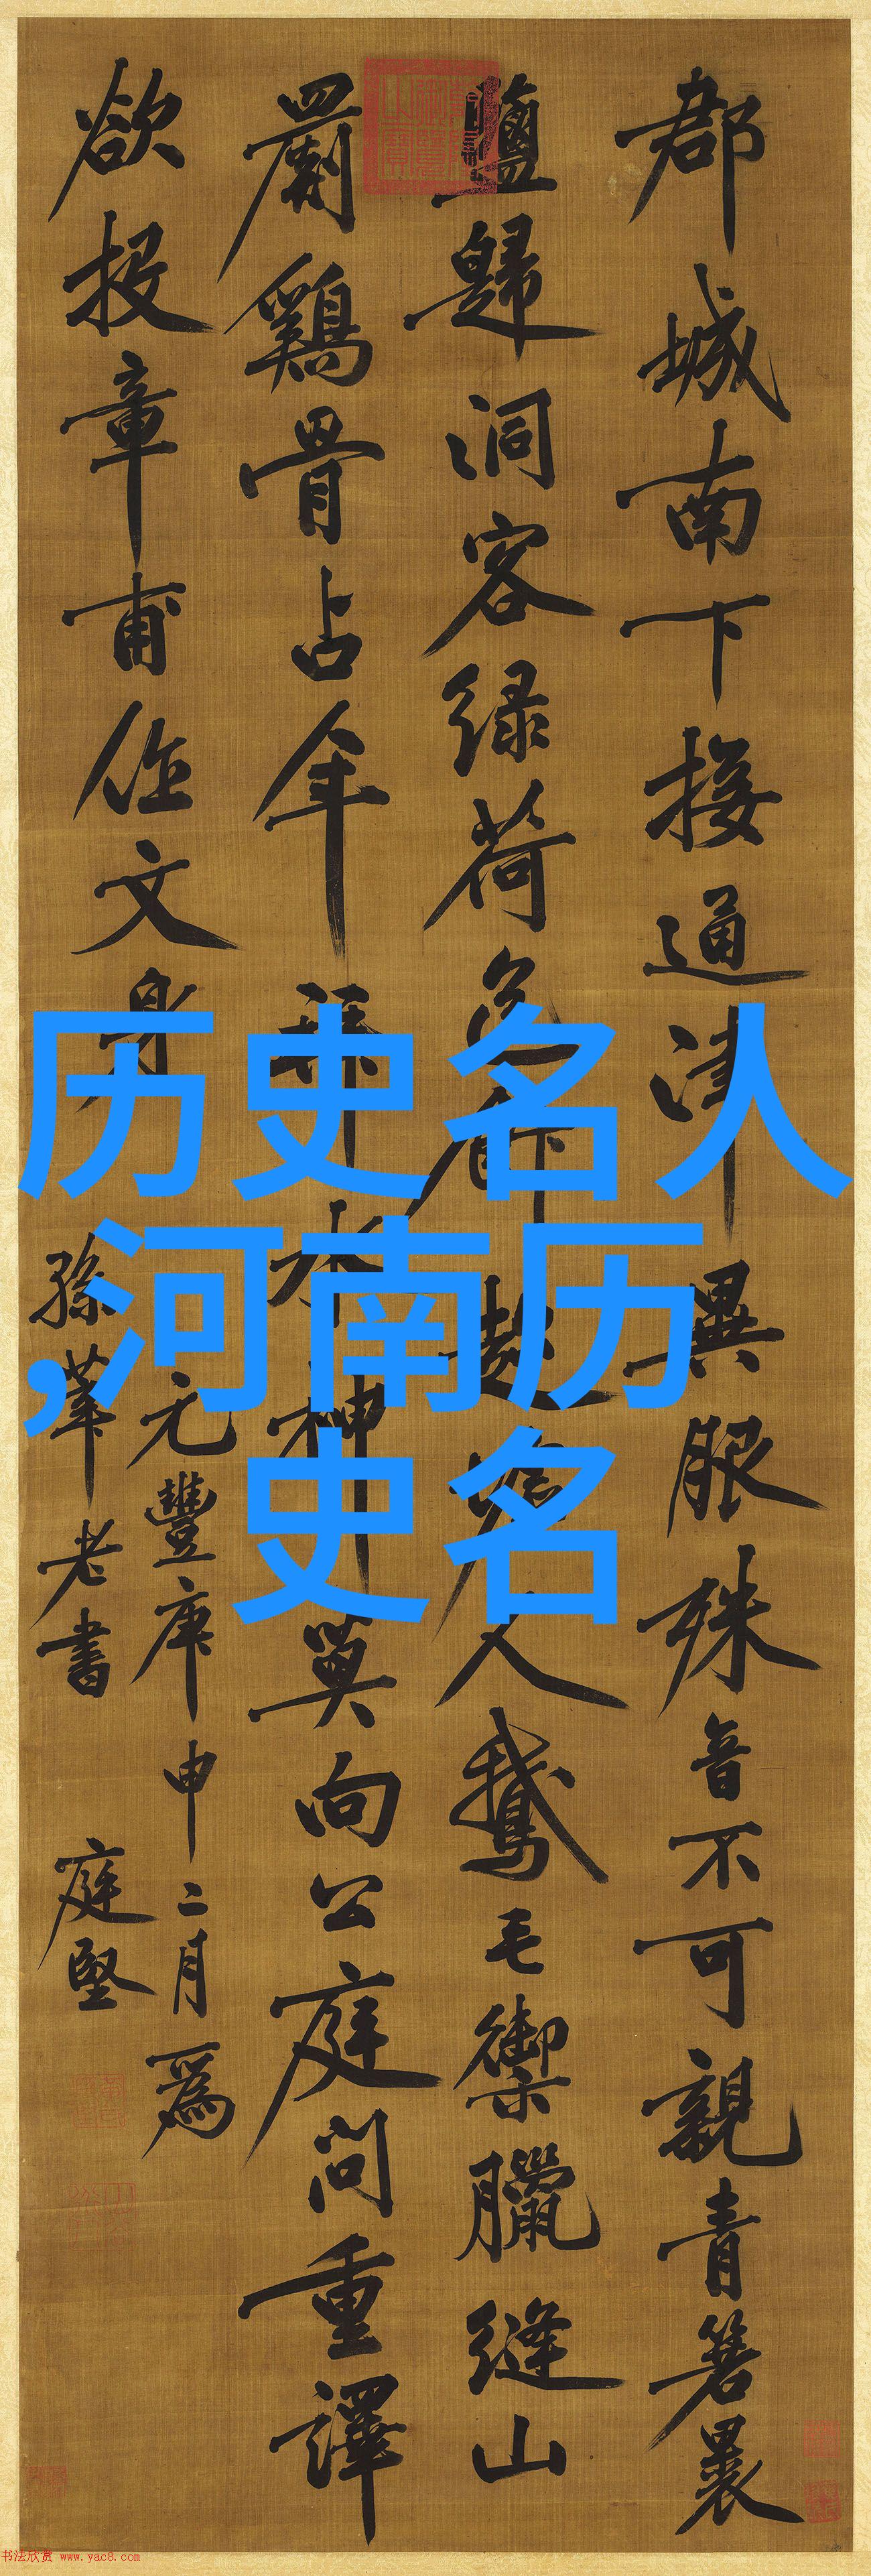 郡城南下接通津異服殊音不可親青箬裹
鹽歸洞客绿荷包飰趁墟人鵝毛御臘縫山
罽鷄骨占年拜水神莫向公庭问重譯
欲投章甫作文身
元豐庚申二月爲
孫莘老書
庭堅
历史名人
,河南历
史名
书法欣赏 www.yac8.com